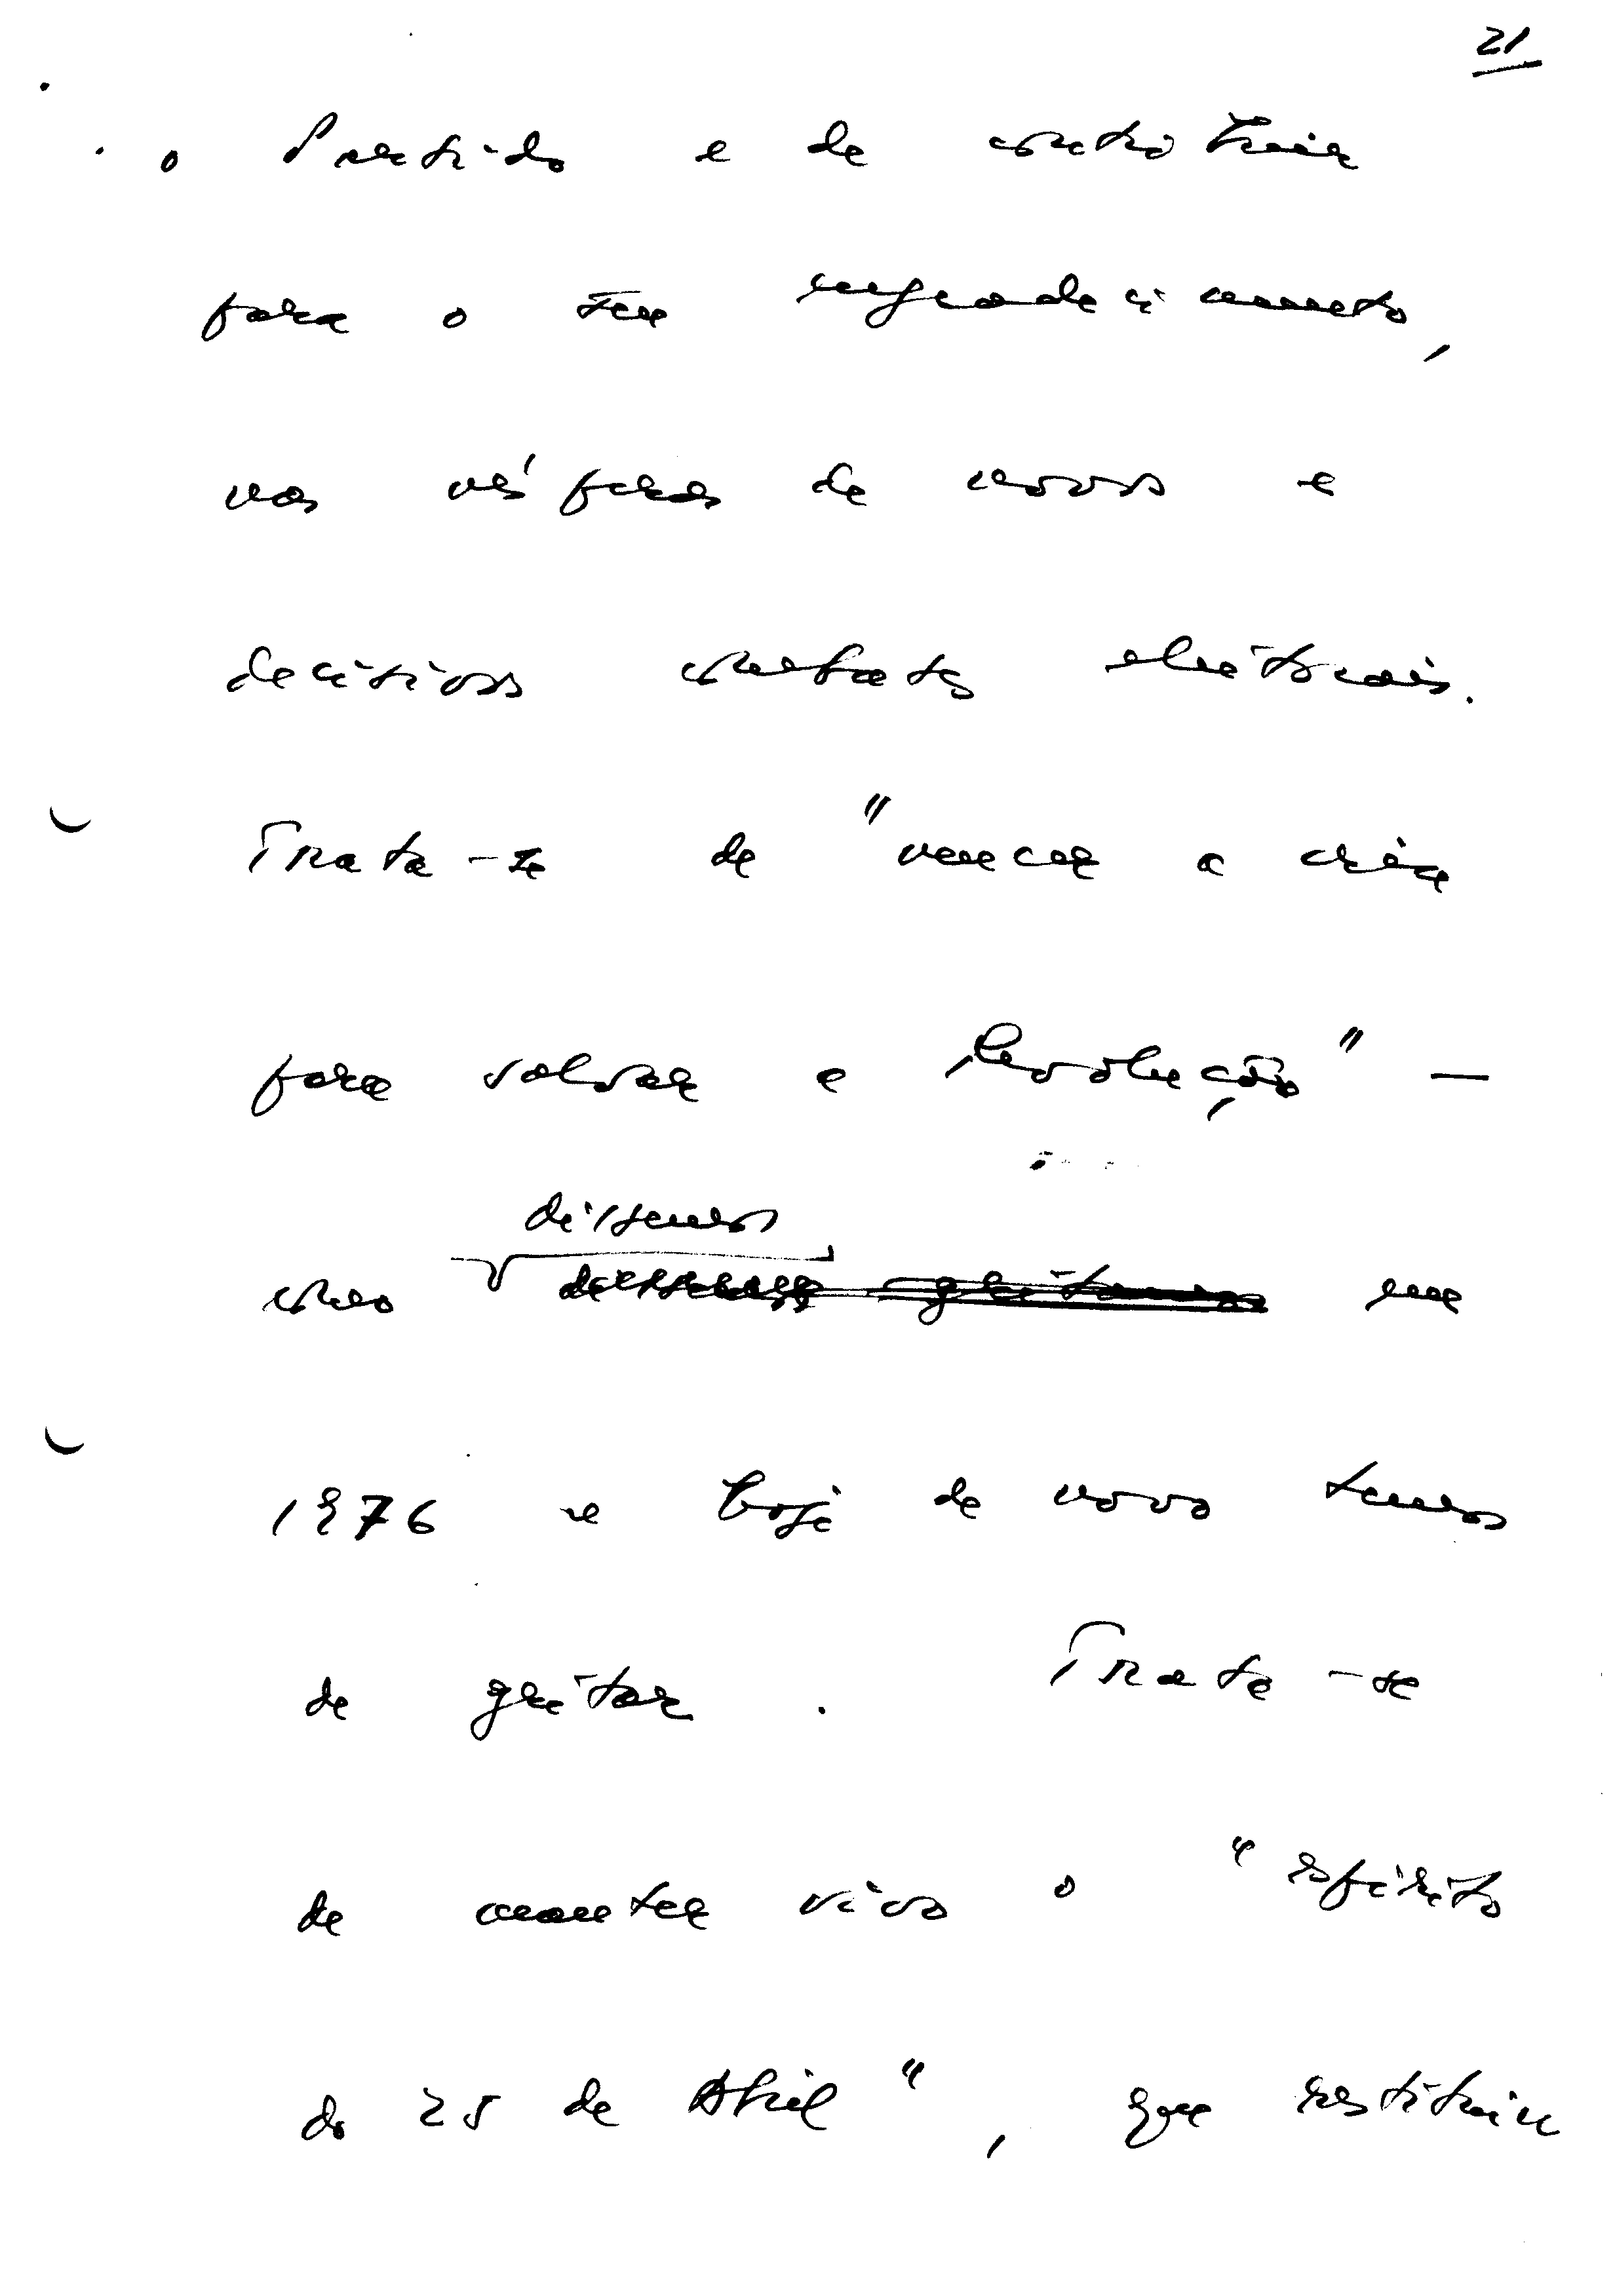 21
o Partido e de contribuir
para o seu engrandecimento,
nas vésperas de novos e
decisivos combates eleitorais.
Trata-se de "vencer a crise
para salvar a Revolução" —
dissemos
como em
1976 e hoje de novo temos
de gritar. Trata-se
de manter vivo o "espírito
do 25 de Abril", que restituiu